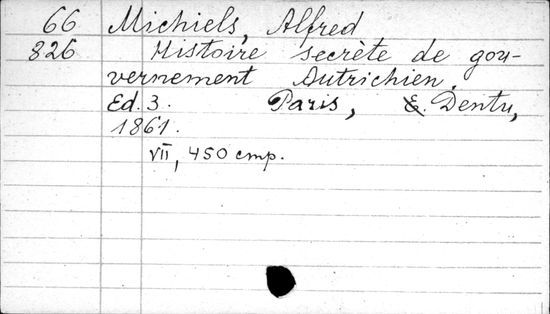 66 Michiels, Alfred
826 Histoire secrète de gou-
vernement Autrichien.
Ed. 3. Paris, E. Dentu,
1861.
VII, 450 cmp.